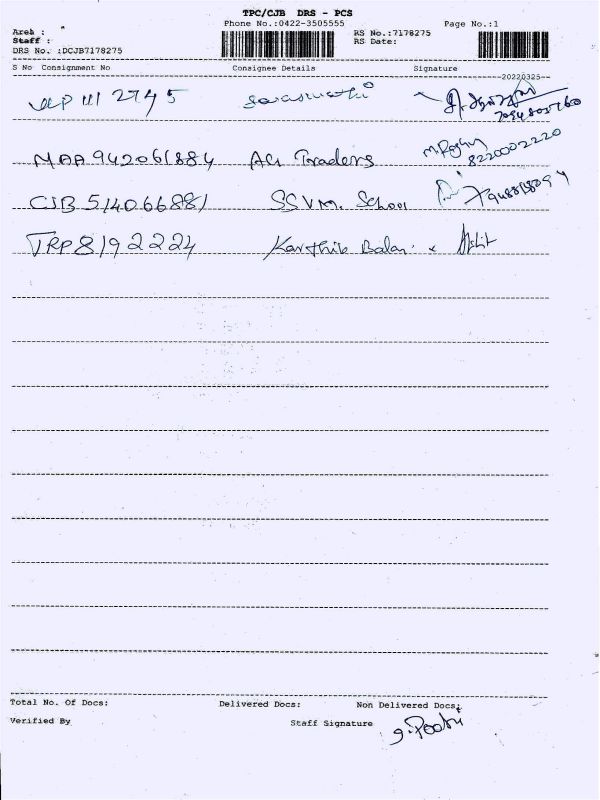 TPC/CJB DRS - PCS
Phone No.:0422-3505555 Page No.:1
Areb :
Staff : RS No.:7178275
RS Date:
DRS No. :DCJB7178275
S No Consignment No Consignee Details Signature
20220325
111 2745 Saraswathi
7094805760
MAA 942061884 AG Traders 8220002220
CJB 514066881 SSVM. School
TRP 8192224 Karthik Balan
Total No. Of Docs: Delivered Docs: Non Delivered Docs:
Verified By Staff Signature